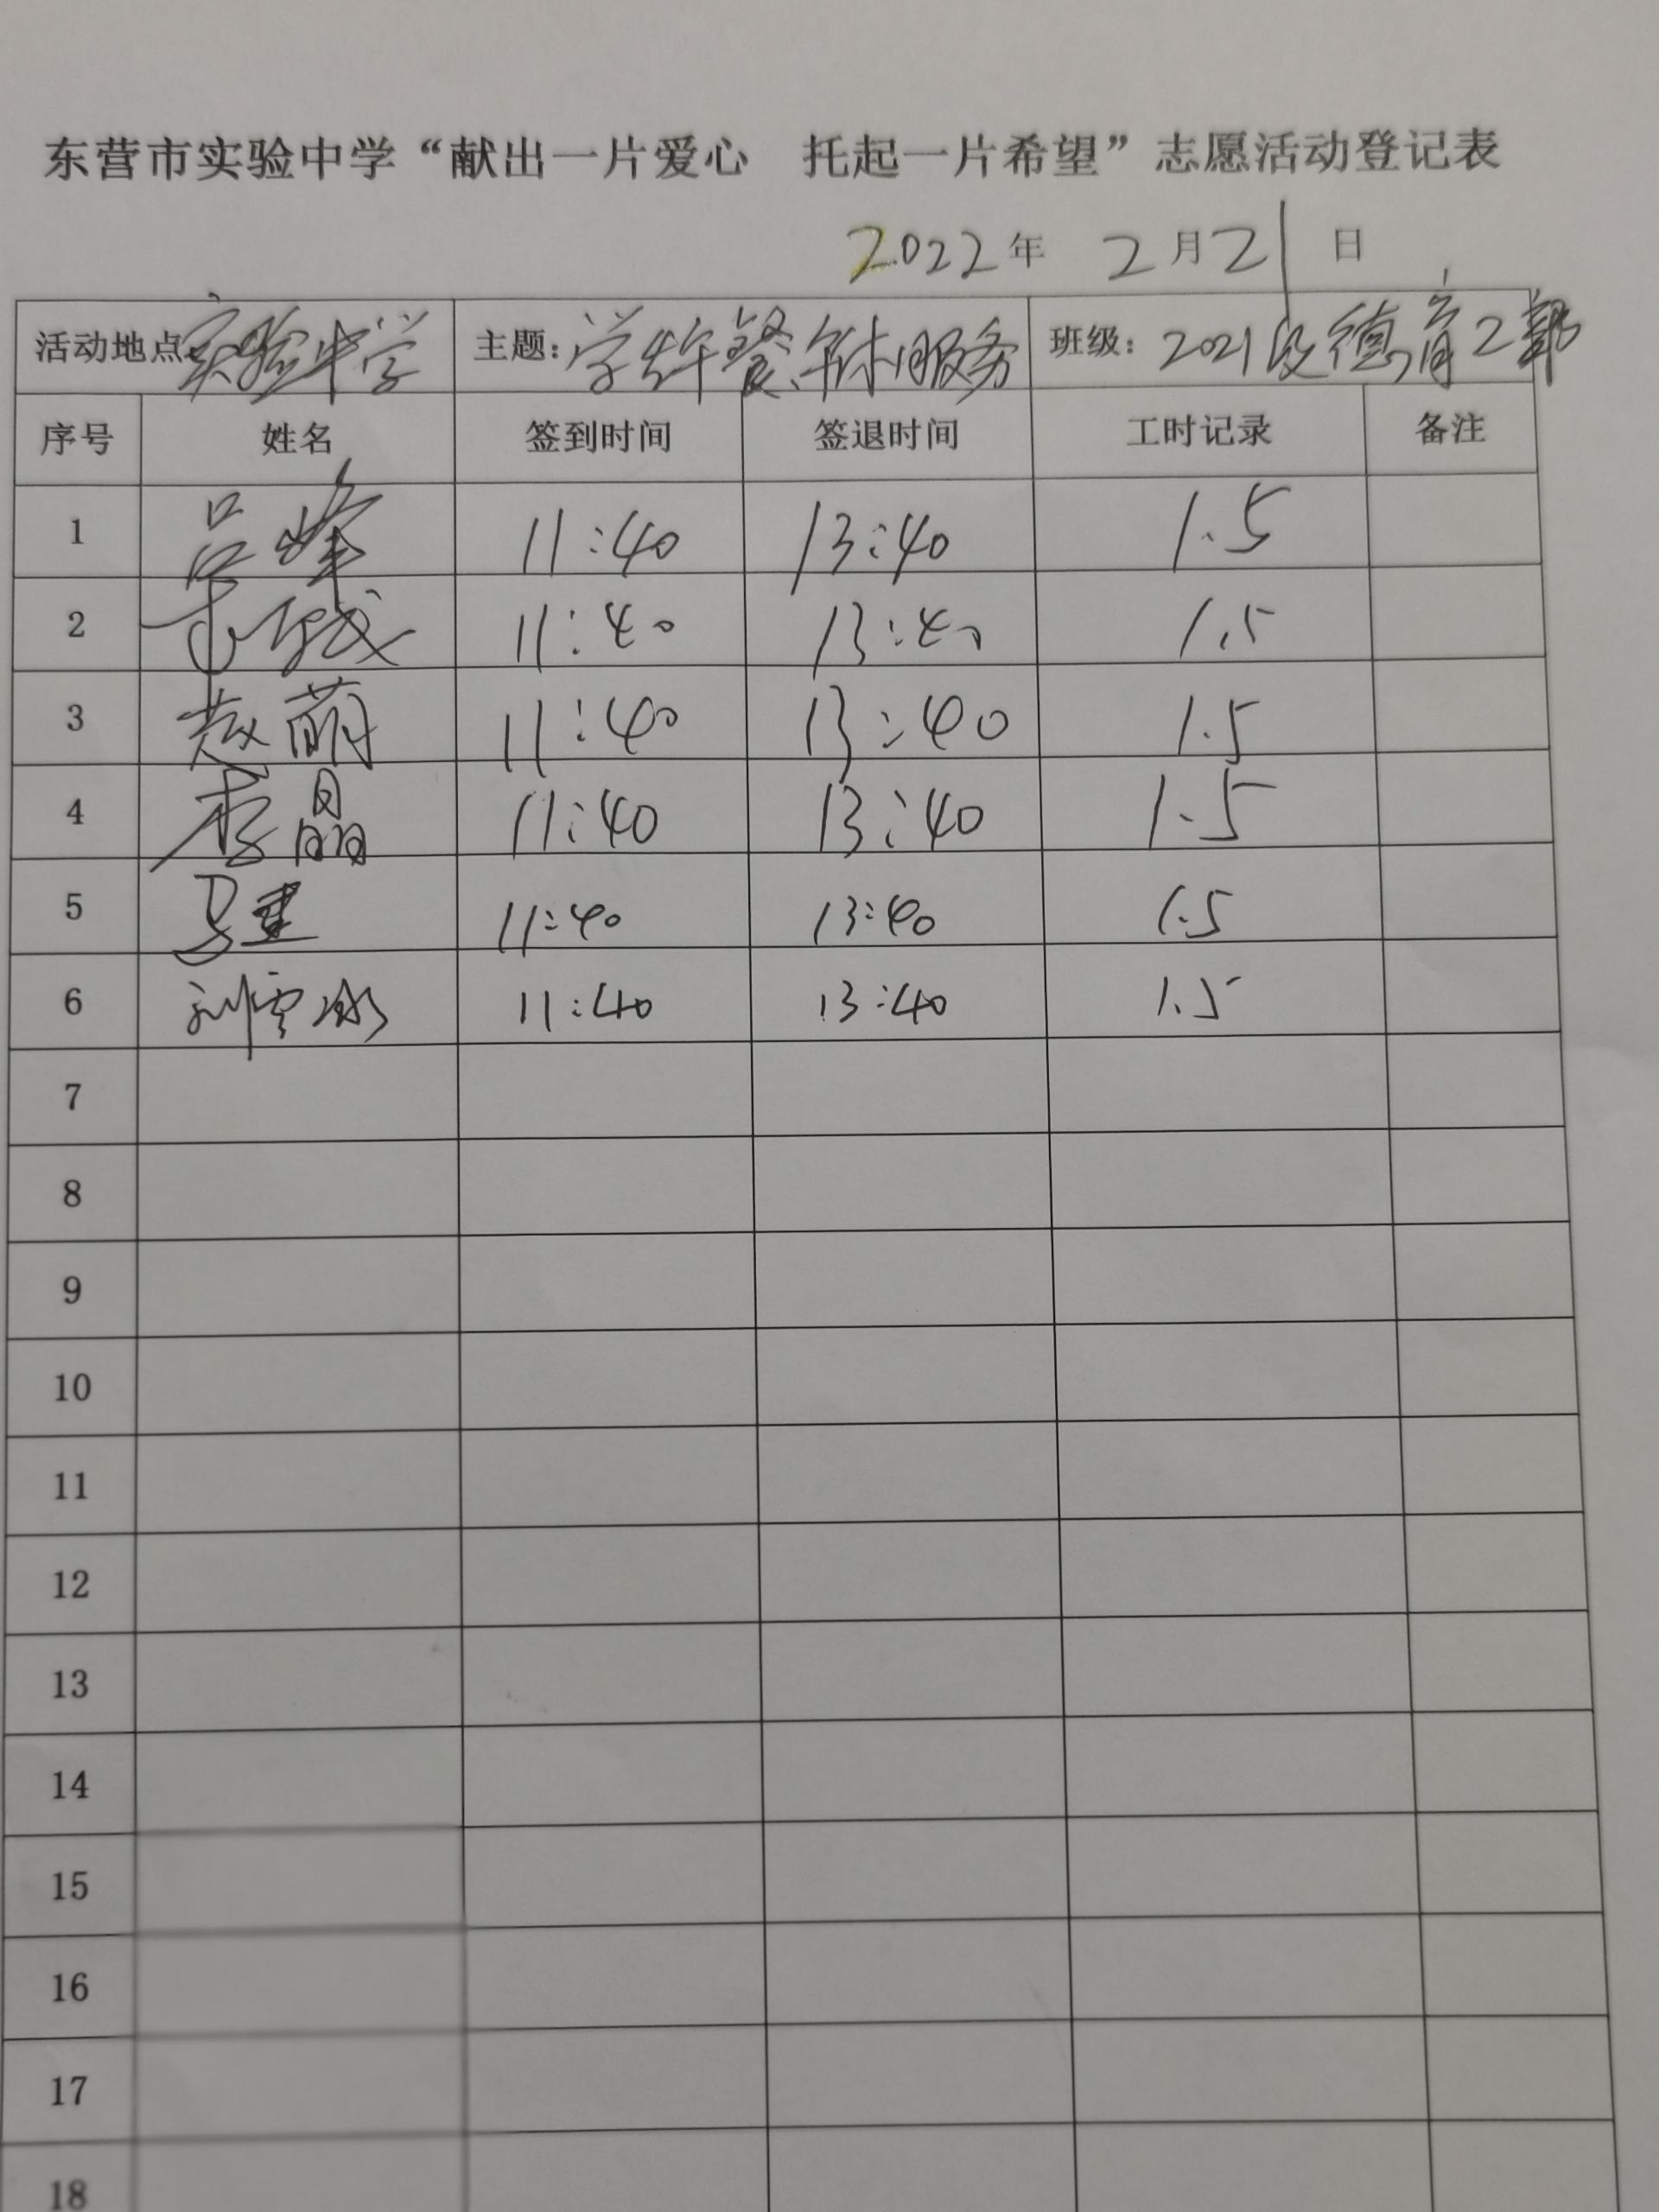 东营市实验中学“献出一片爱心 托起一片希望”志愿活动登记表
2022年 2月21日
活动地点:实验中学 主题:学生午餐、午休服务 班级:2021级德育2部
序号 姓名 签到时间 签退时间 工时记录 备注
1 吕峰 11:40 13:40 1.5
2 11:40 13:40 1.5
3 赵萌 11:40 13:40 1.5
4 李晶 11:40 13:40 1.5
5 马 11:40 13:40 1.5
6 刘雪冰 11:40 13:40 1.5
7
8
9
10
11
12
13
14
15
16
17
18